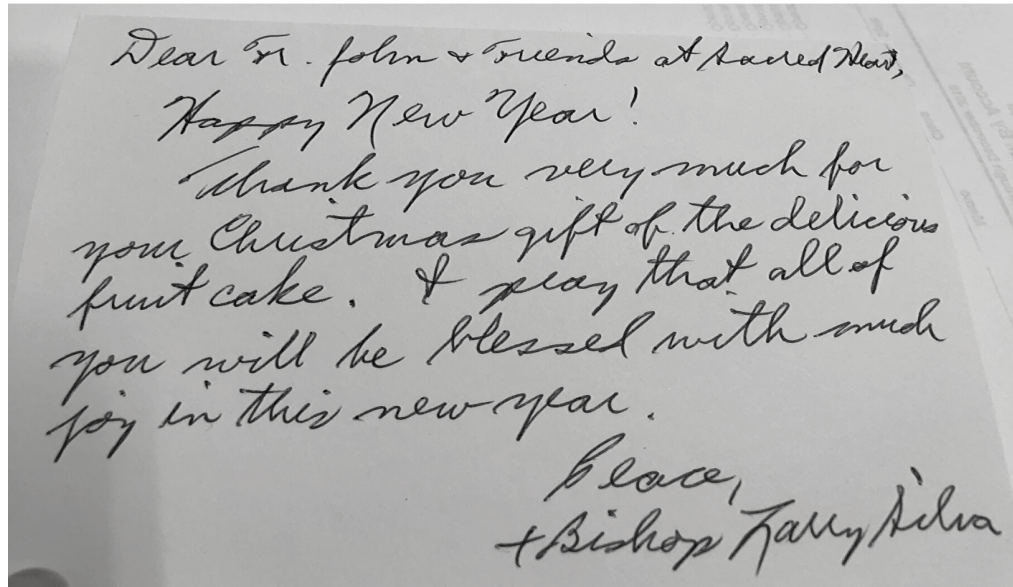 Dear Fr. John + Friends at Sacred Heart,
Happy New Year!
Thank you very much for
your Christmas gift of the delicious
fruit cake. I pray that all of
you will be blessed with much
joy in this new year.
Peace,
+Bishop Larry Silva